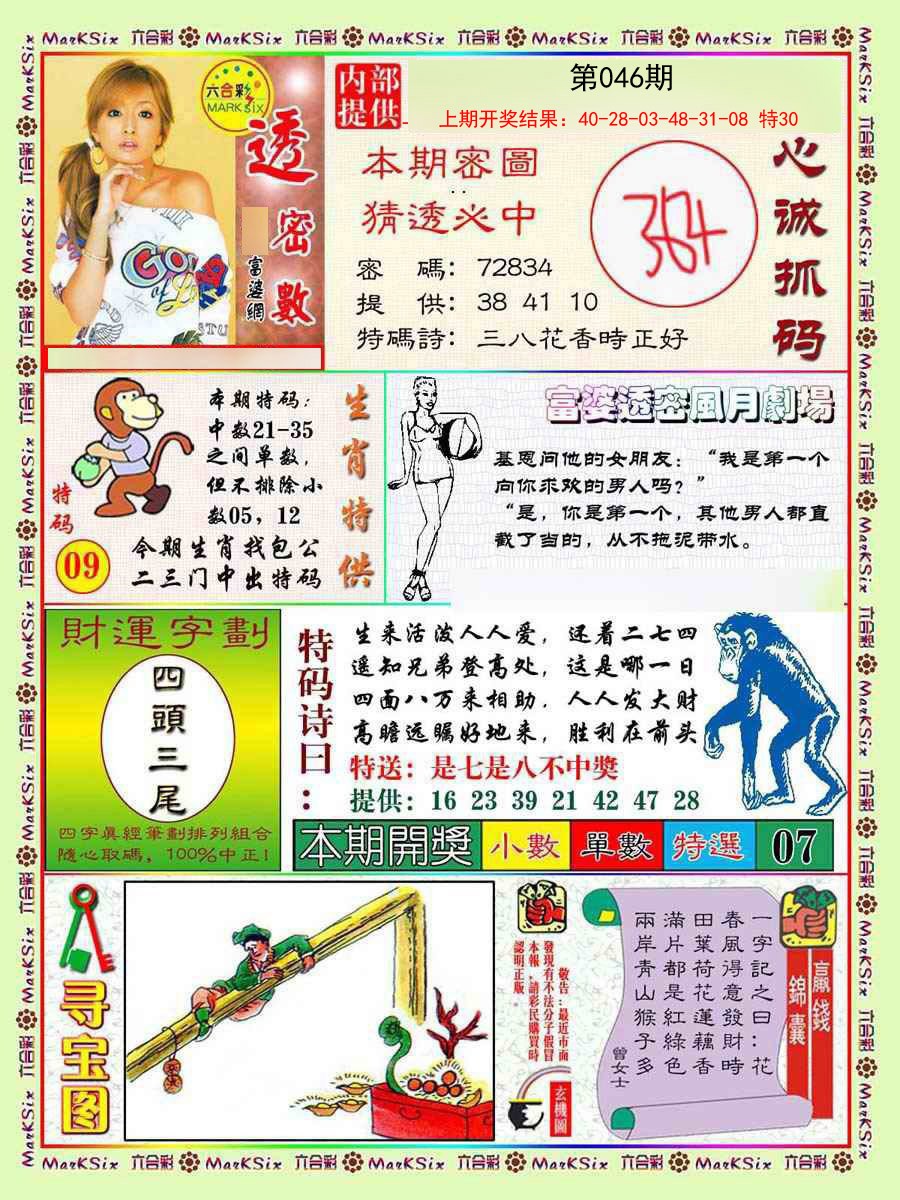 MarKSix 六合彩 MarKSix 六合彩 MarKSix 六合彩 MarKSix 六合彩 MarKSix 六合彩
六合彩
MARK SIX
透密數
富婆網
内部
提供
第046期
上期开奖结果：40-28-03-48-31-08 特30
本期密圖
猜透必中
密 碼：72834
提 供：38 41 10
特碼詩：三八花香時正好
364
心诚抓码
本期特码：
中数21-35
之间单数，
但不排除小
数05，12
今期生肖找包公
二三门中出特码
特码
09
生肖特供
富婆透密風月劇場
基恩问他的女朋友：“我是第一个
向你求欢的男人吗？”
“是，你是第一个，其他男人都直
截了当的，从不拖泥带水。
財運字劃
四頭三尾
四字真經筆劃排列組合
隨心取碼，100%中正!
特码诗曰：
生来活泼人人爱，还着二七四
遥知兄弟登高处，这是哪一日
四面八万来相助，人人发大财
高瞻远瞩好地来，胜利在前头
特送：是七是八不中獎
提供：16 23 39 21 42 47 28
本期開獎 小數 單數 特選 07
寻宝图
敬告：最近市面
發現有不法分子假冒
本報，請彩民購買時
認明正版。
玄機圖
一字記之曰：花
春風得意發財時
田葉荷花蓮藕香
滿片都是紅綠色
兩岸青山猴子多
曾女士
贏錢
錦囊
MarKSix 六合彩 MarKSix 六合彩 MarKSix 六合彩 MarKSix 六合彩 MarKSix 六合彩